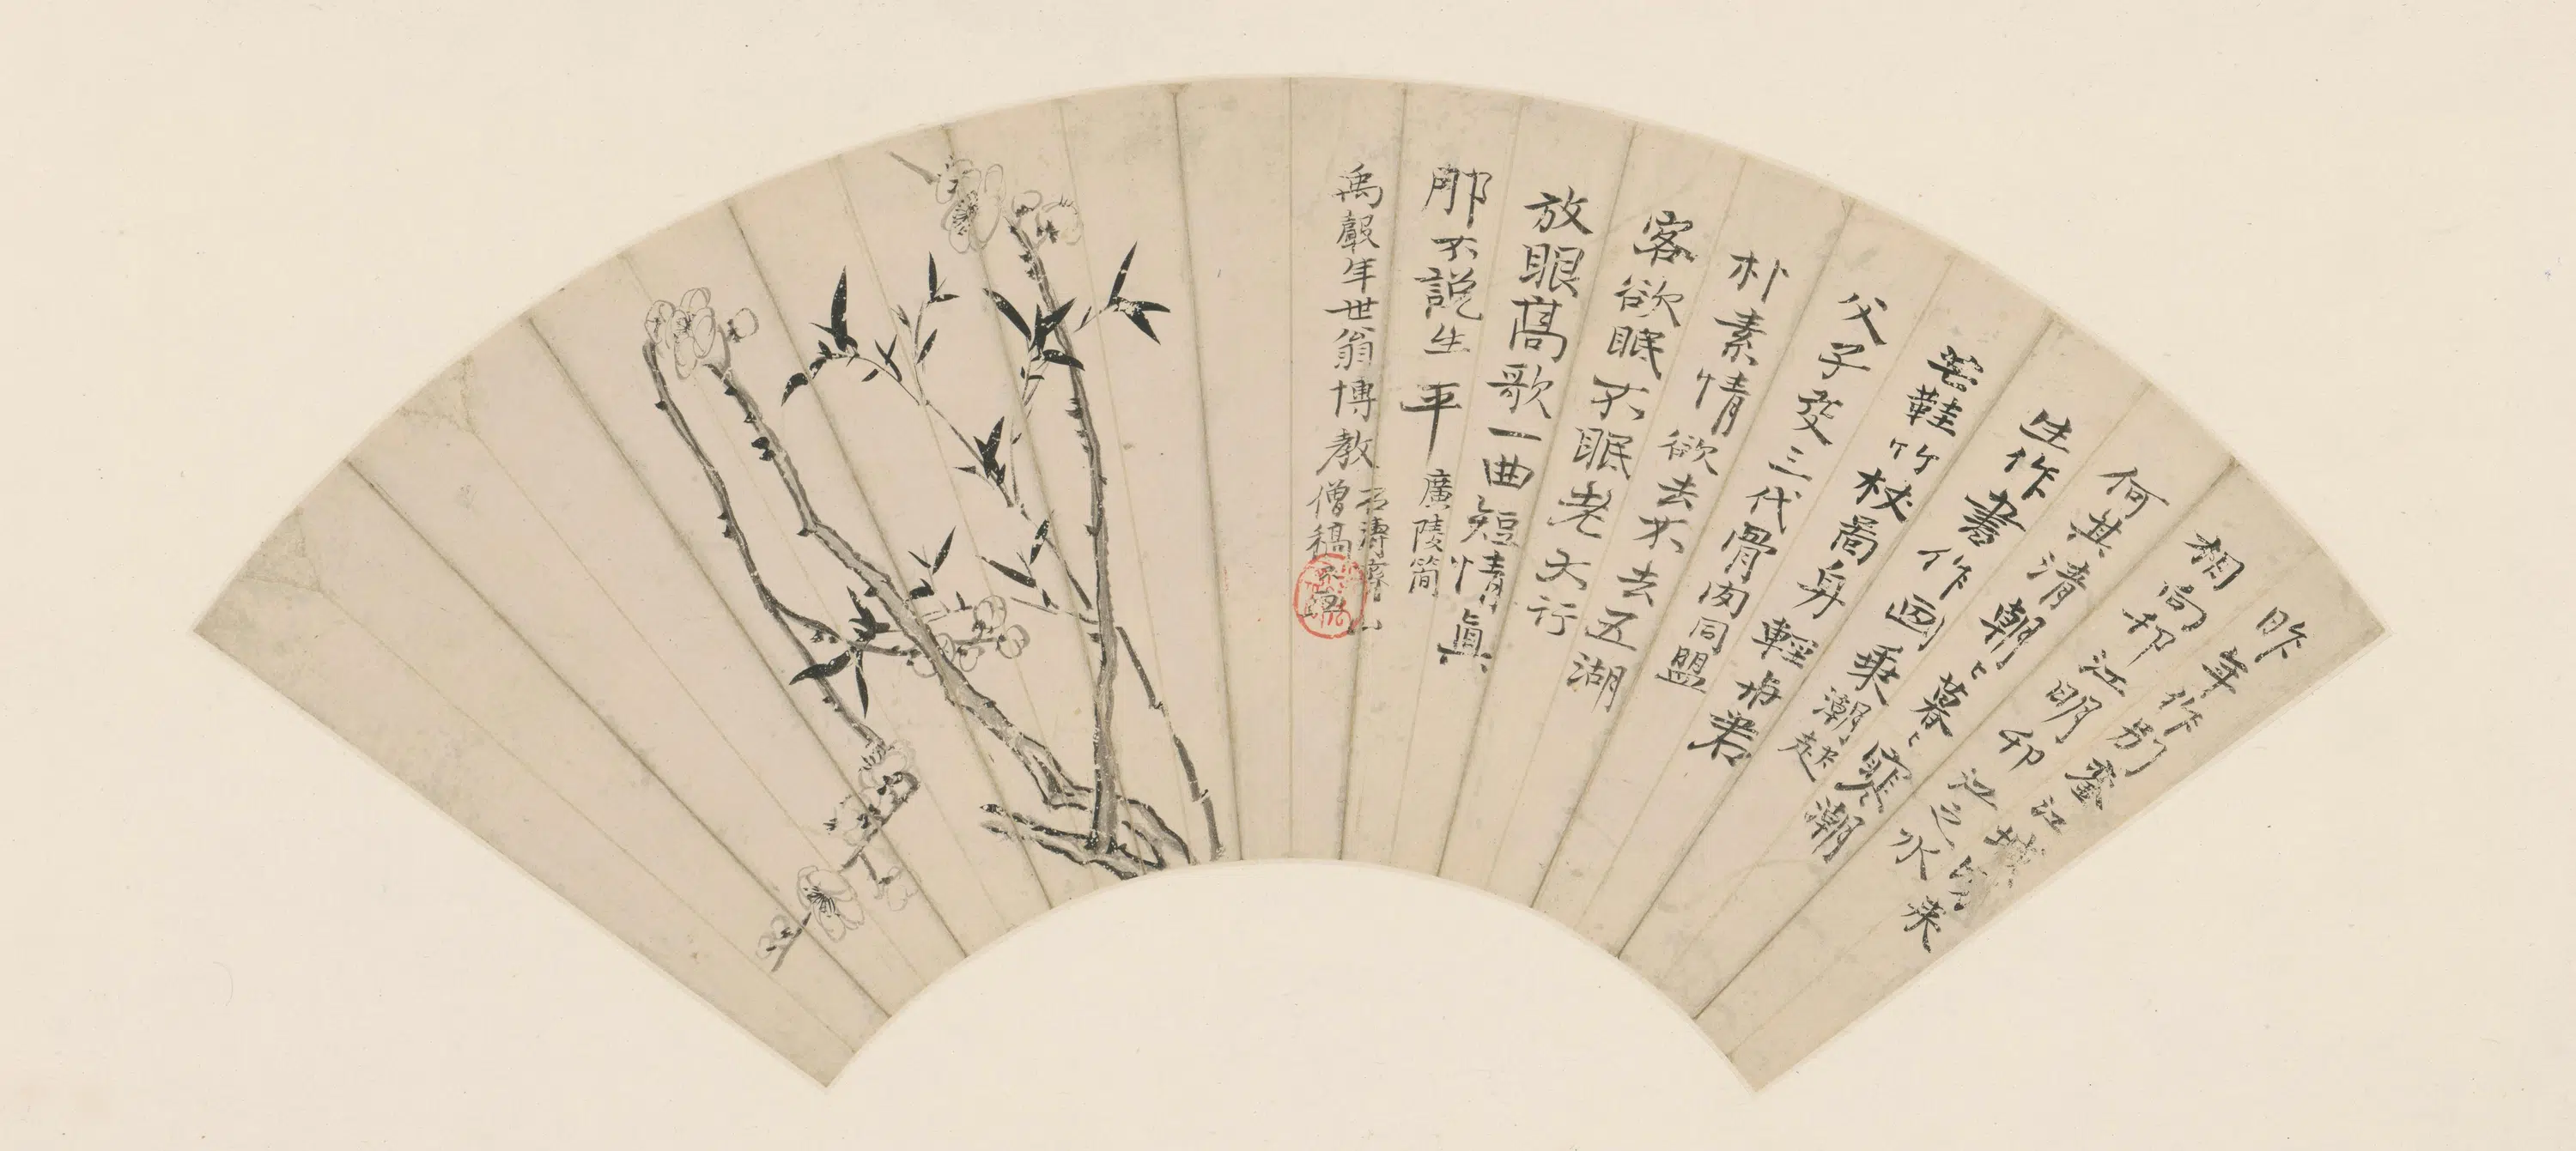 昨年作別鑾江城來
相向邗江明卯江之水
何其清朝ヒ暮ヒ寒潮
生作書作画乘潮趂
芒鞋竹杖身輕與君
父子交三代骨肉同盟
朴素情欲去不去五湖
客欲眠不眠老大行
放眼高歌一曲短情真
那不說生平 廣陵簡
禹聲年世翁博教 石濤濟山
僧稿